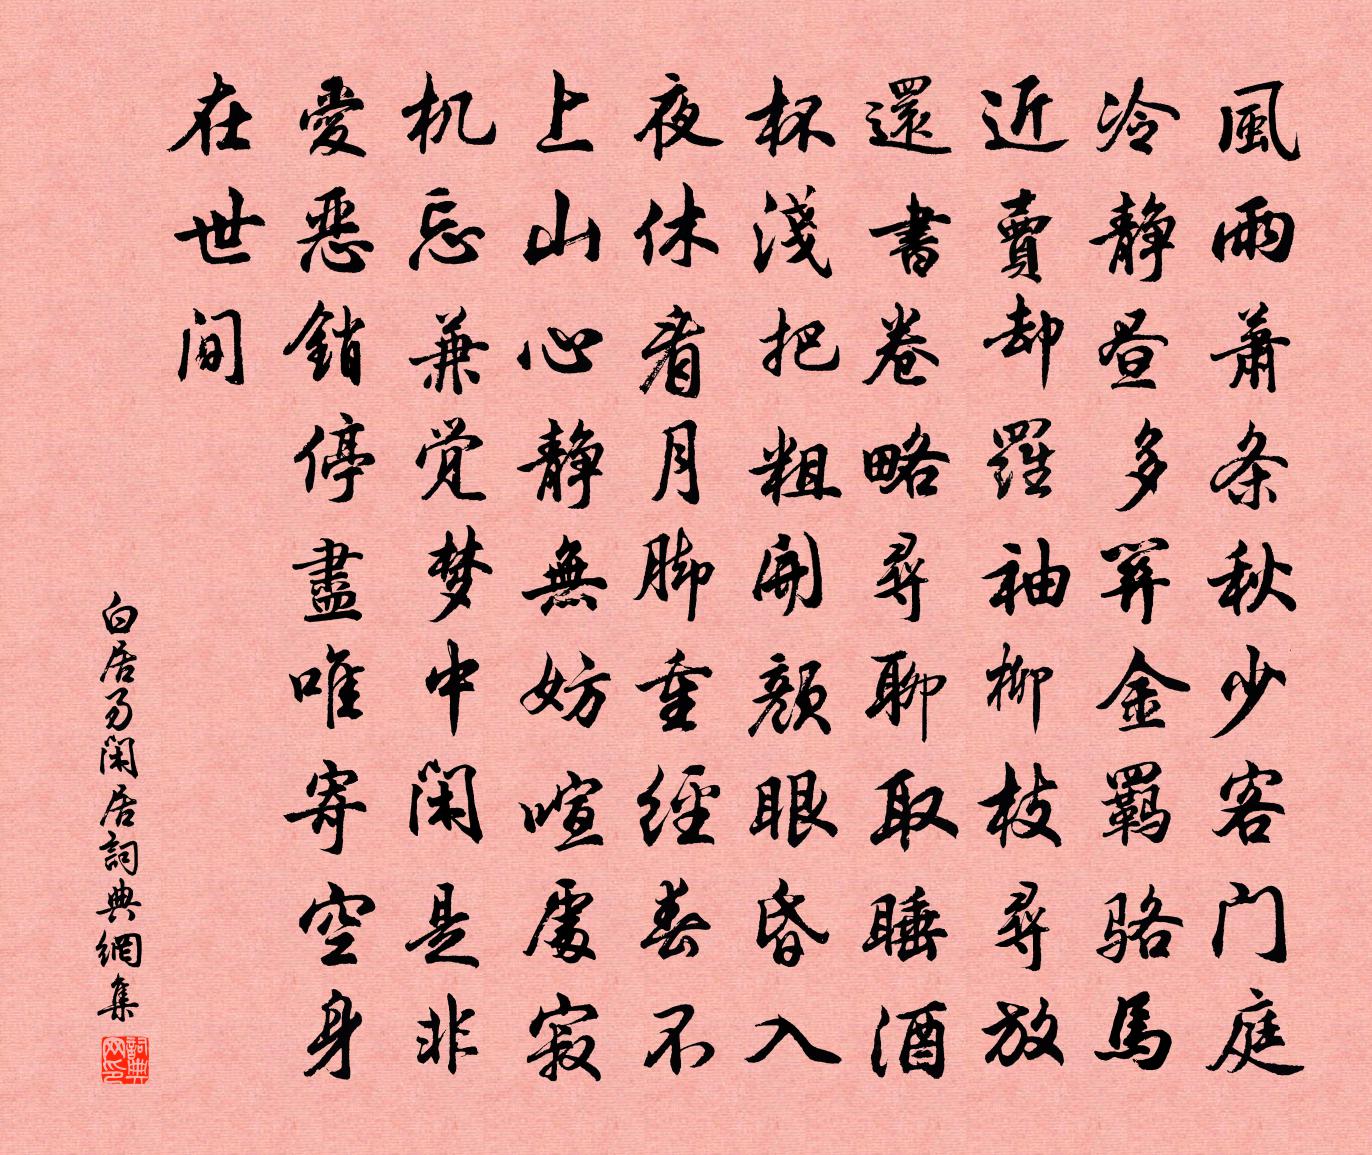 風雨蕭条秋少客门庭
冷静昼多関金羈骆馬
近賣却羅袖柳枝尋放
還書卷略尋聊取睡酒
杯淺把粗開顏眼昏入
夜休看月脚重經春不
上山心静無妨喧處寂
机忘兼觉梦中闲是非
愛惡銷停盡唯寄空身
在世间
白居易闲居詞典網集
詞典网印